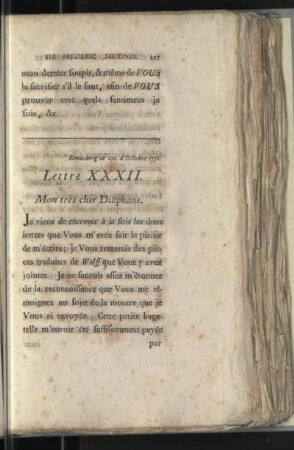 DE FREDERIC SECOND. 127
mon dernier soupir, & même de VOUS
la sacrifier s'il le faut, afin de VOUS
prouver avec quels sentimens je
suis, &c.
ce d'Octobre
Lettre XXXII.
Mon très cher Diaphane.
Je viens de recevoir à la fois les deux
lettres que Vous m'avez fait le plaisir
de m'écrire; je Vous remercie des piè-
ces traduites de Wolff que Vous y avez
jointes. Je ne saurois assez m'étonner
de la reconnoissance que Vous me té-
moignez au sujet de la montre que je
Vous ai envoyée. Cette petite baga-
telle m'auroit été suffisamment payée
par